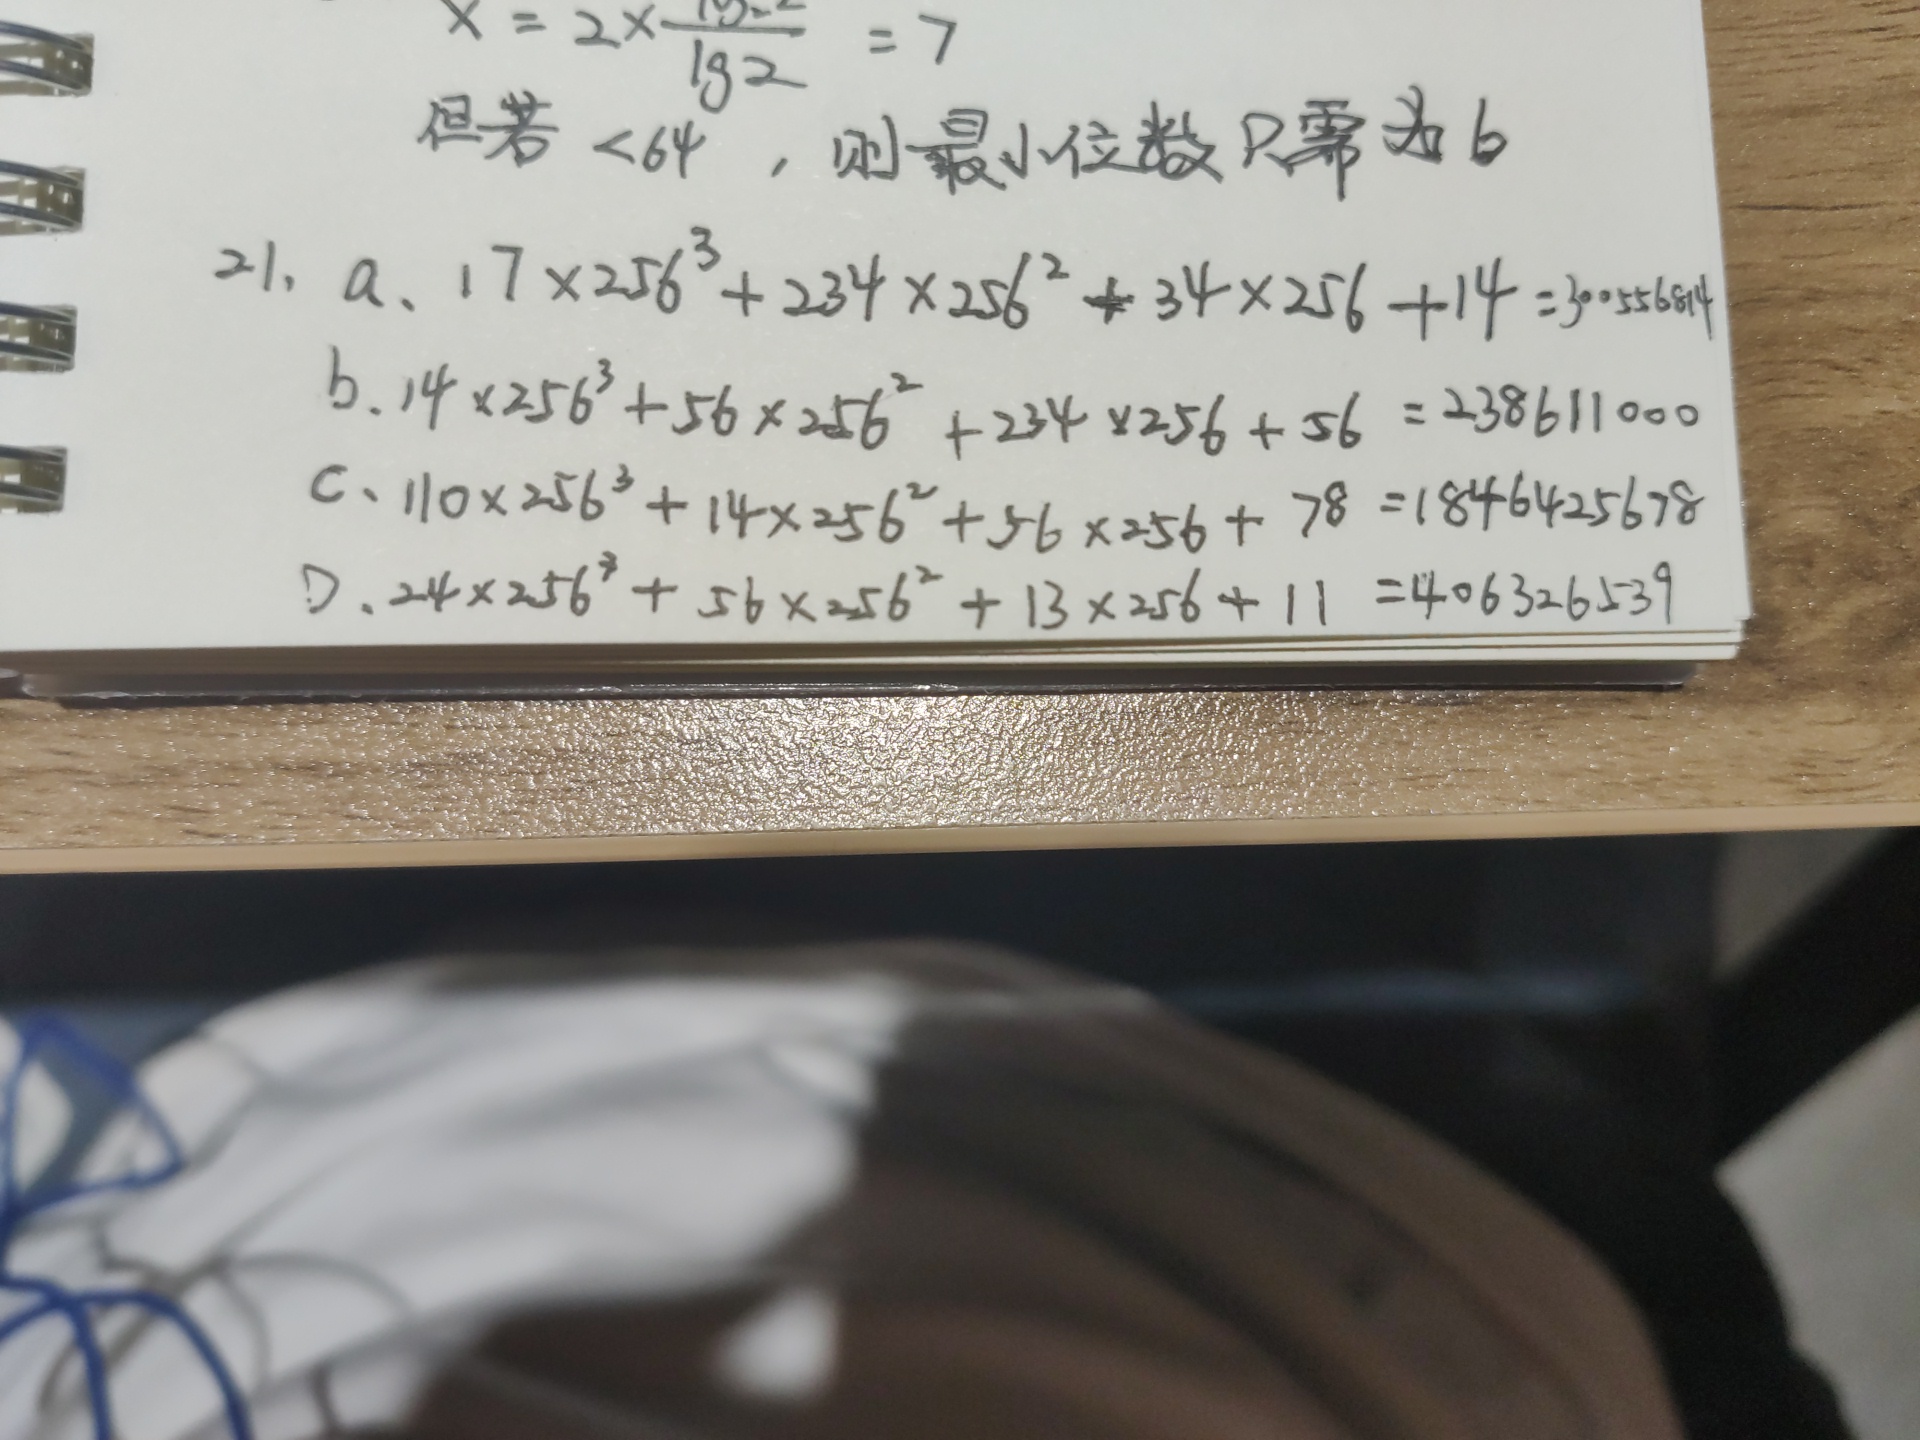 x = 2× /lg2 = 7
但若 <64 , 则最小位数只需为 6
21. a、17×256³+234×256²+34×256+14=300556814
b.14×256³+56×256²+234×256+56=238611000
c、110×256³+14×256²+56×256+78=1846425678
D.24×256³+56×256²+13×256+11=406326539